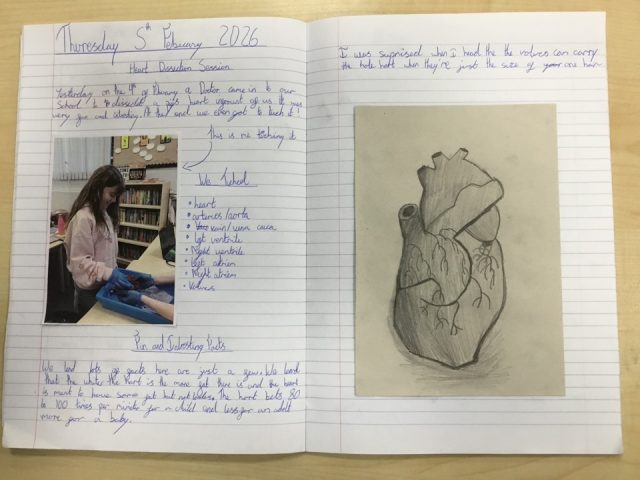 Thursday 5th Febuary 2026
Heart Dissection Session
Yesterday on the 4th of Febuary a Doctor came in to our
School to dissect a pigs heart infront of us. It was
very fun and intresting. At the end we even got to touch it!
This is me toching it
We Toched
• heart
• arteries/aorta
• vain/vena cava
• Left ventrile
• Right ventrile
• Left atrien
• Right atriem
• Valves
Fun and Interesting Facts
We lernd lots of facts here are just a few. We lernd
that the whiter the hart is the more fat there is and the heart
is ment to have some fat but not loads. The hart bets 80
to 100 times per minite for a child and less for an adult
more for a baby.
I was suprised when I head the the valves can carry
the hole hart when they're just the size of one hair.